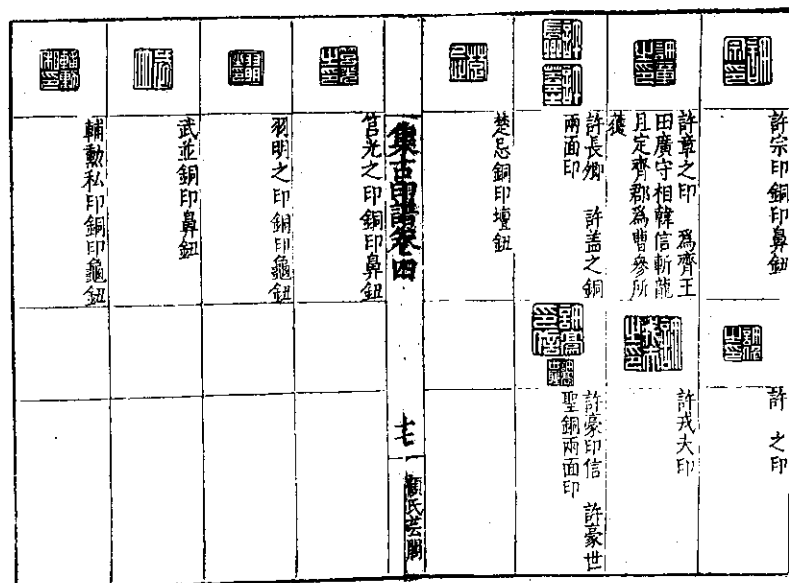 許宗印銅印鼻鈕
許　之印
許章之印　爲齊王
田廣守相韓信斬龍
且定齊郡爲曹參所
獲
許戎夫印
許長卿　許蓋之銅
兩面印
許豪印信　許豪世
聖銅兩面印
楚忌銅印壇鈕
集古印譜卷四
十七
顧氏芸閣
筥光之印銅印鼻鈕
羽明之印銅印龜鈕
武並銅印鼻鈕
輔勳私印銅印龜鈕